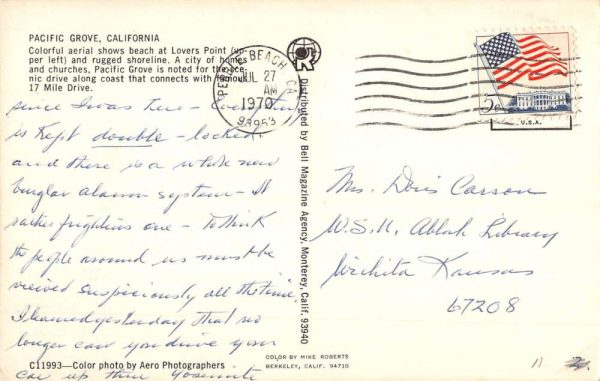 PACIFIC GROVE, CALIFORNIA
Colorful aerial shows beach at Lovers Point (up-
per left) and rugged shoreline. A city of homes
and churches, Pacific Grove is noted for the sce-
nic drive along coast that connects with famous
17 Mile Drive.
since I was here —
is kept double-locked,
and there is a whole new
burglar alarm system — It
rather frightens one — to think
the people around us must be
viewed suspiciously all the time.
I learned yesterday that no
longer can you drive your
car up thru Yosemite
C11993—Color photo by Aero Photographers
Distributed by Bell Magazine Agency, Monterey, Calif. 93940
COLOR BY MIKE ROBERTS
BERKELEY, CALIF. 94710
PEBBLE BEACH, CA
JUL 27
AM
1970
93953
5c
U.S.A.
Mrs. Doris Carson
W.S.U. Ablah Library
Wichita Kansas
67208